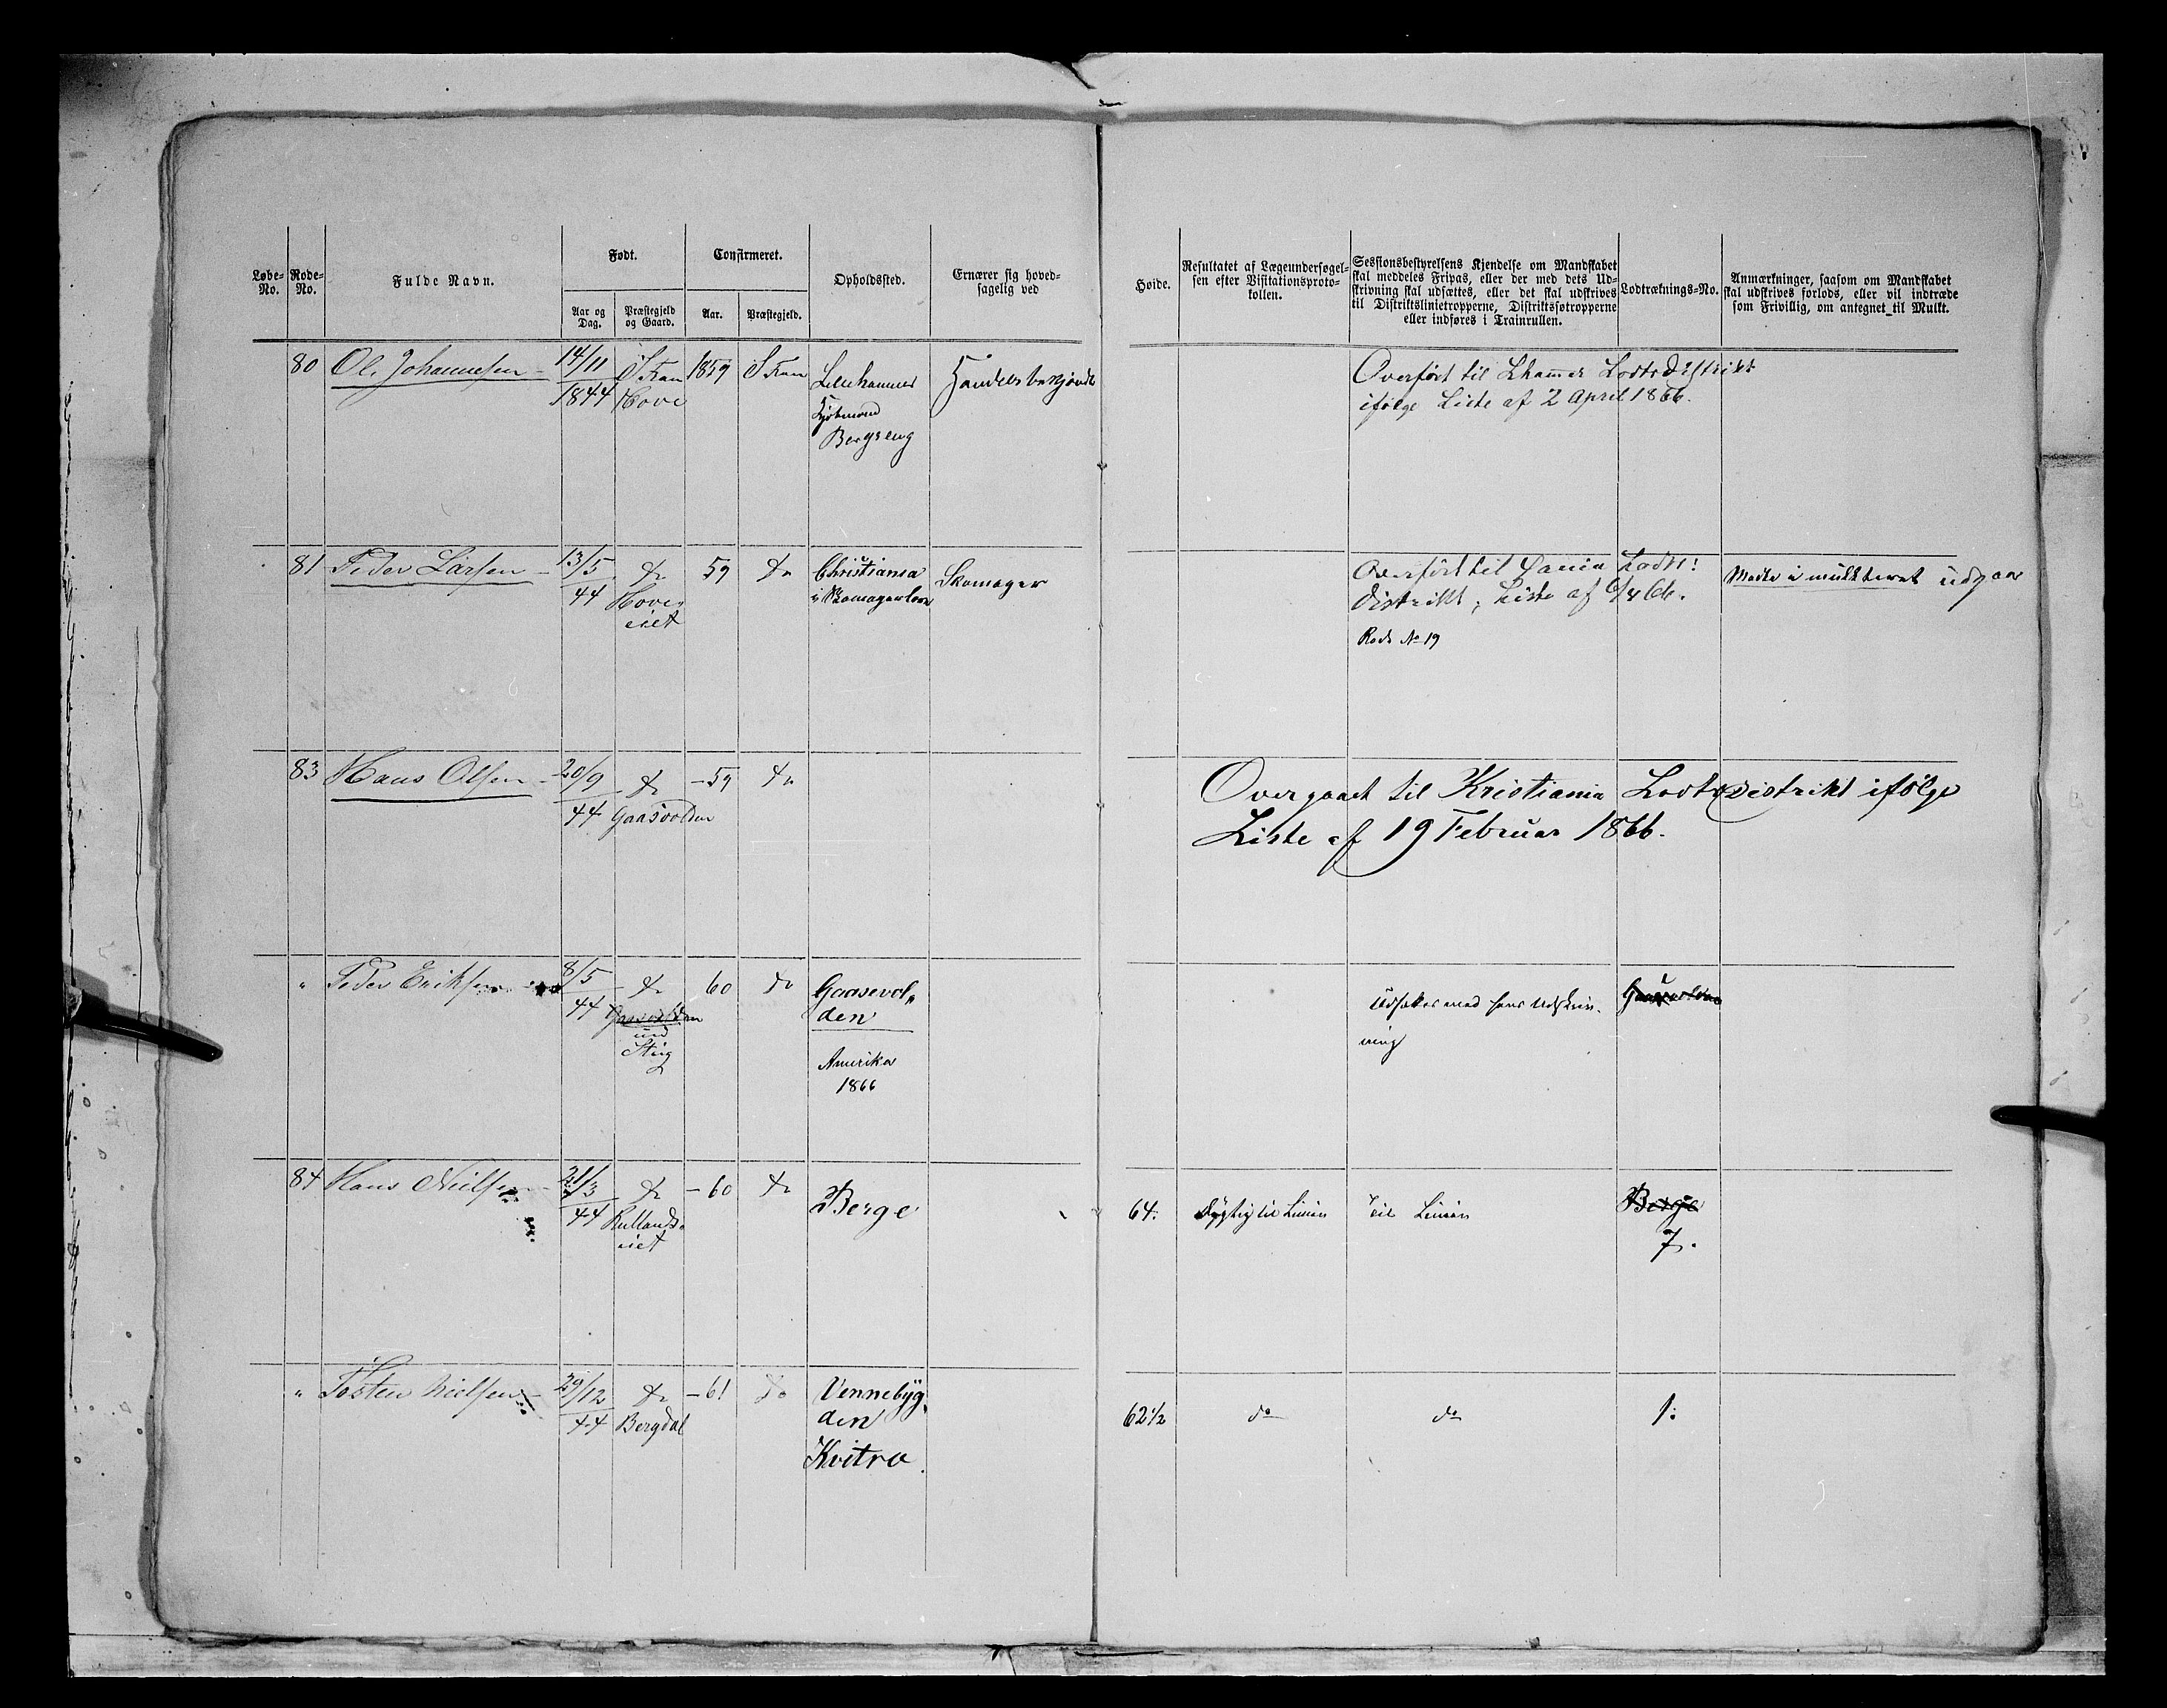 Født.
Confirmeret.
Løbe-
No.
Rode-
No.
Fulde Navn.
Aar og
Dag.
Præstegjeld
og Gaard.
Aar.
Præstegjeld.
Opholdssted.
Ernærer sig hoved-
sagelig ved
Høide.
Resultatet af Lægeundersøgel-
sen efter Visitationsproto-
kollen.
Sessionsbestyrelsens Kjendelse om Mandskabet
skal meddeles Fripas, eller der med dets Ud-
skrivning skal udsættes, eller det skal udskrives
til Distriktslinietropperne, Distriktssøtropperne
eller indføres i Trainrullen.
Lodtræknings-No.
Anmærkninger, saasom om Mandskabet
skal udskrives forlods, eller vil indtræde
som Frivillig, om antegnet til Mulkt.
80 Ole Johannesen 14/11 1844 Hove 1859 Lillehammer
Kjøbmand
Bergseng
Overført til Lhamer Lodtr Distrikt
ifølge Liste af 2 April 1866.
81 Peder Larsen 13/5 44 do Hove
eiet 59 do Christiania Skomager
Overført til Lodtr:
distrikt, Liste af 66.
Rode No 19
udgaar
83 Hans Olsen 20/9 44 do Gaasvolden - 59 do
Overgaaet til Kristiania Lodtrdistrikt ifølge
Liste af 19 Februar 1866.
" Peder Eriksen 8/5 44 do Gaasvolden
und
Stig 60 do Gaasevol"
den
Amerika
1866
Udsættes med hans Udskriv-
ning
84 Hans Nielsen 21/3 44 do Rullands-
eiet - 60 do Berge
64. Dygtig til Linien Til Linien Berge
7.
" Tosten Nielsen 29/12 44 do Bergdal - 61 do Vennebyg,
den
Kvitra
62 1/2 do do 1.